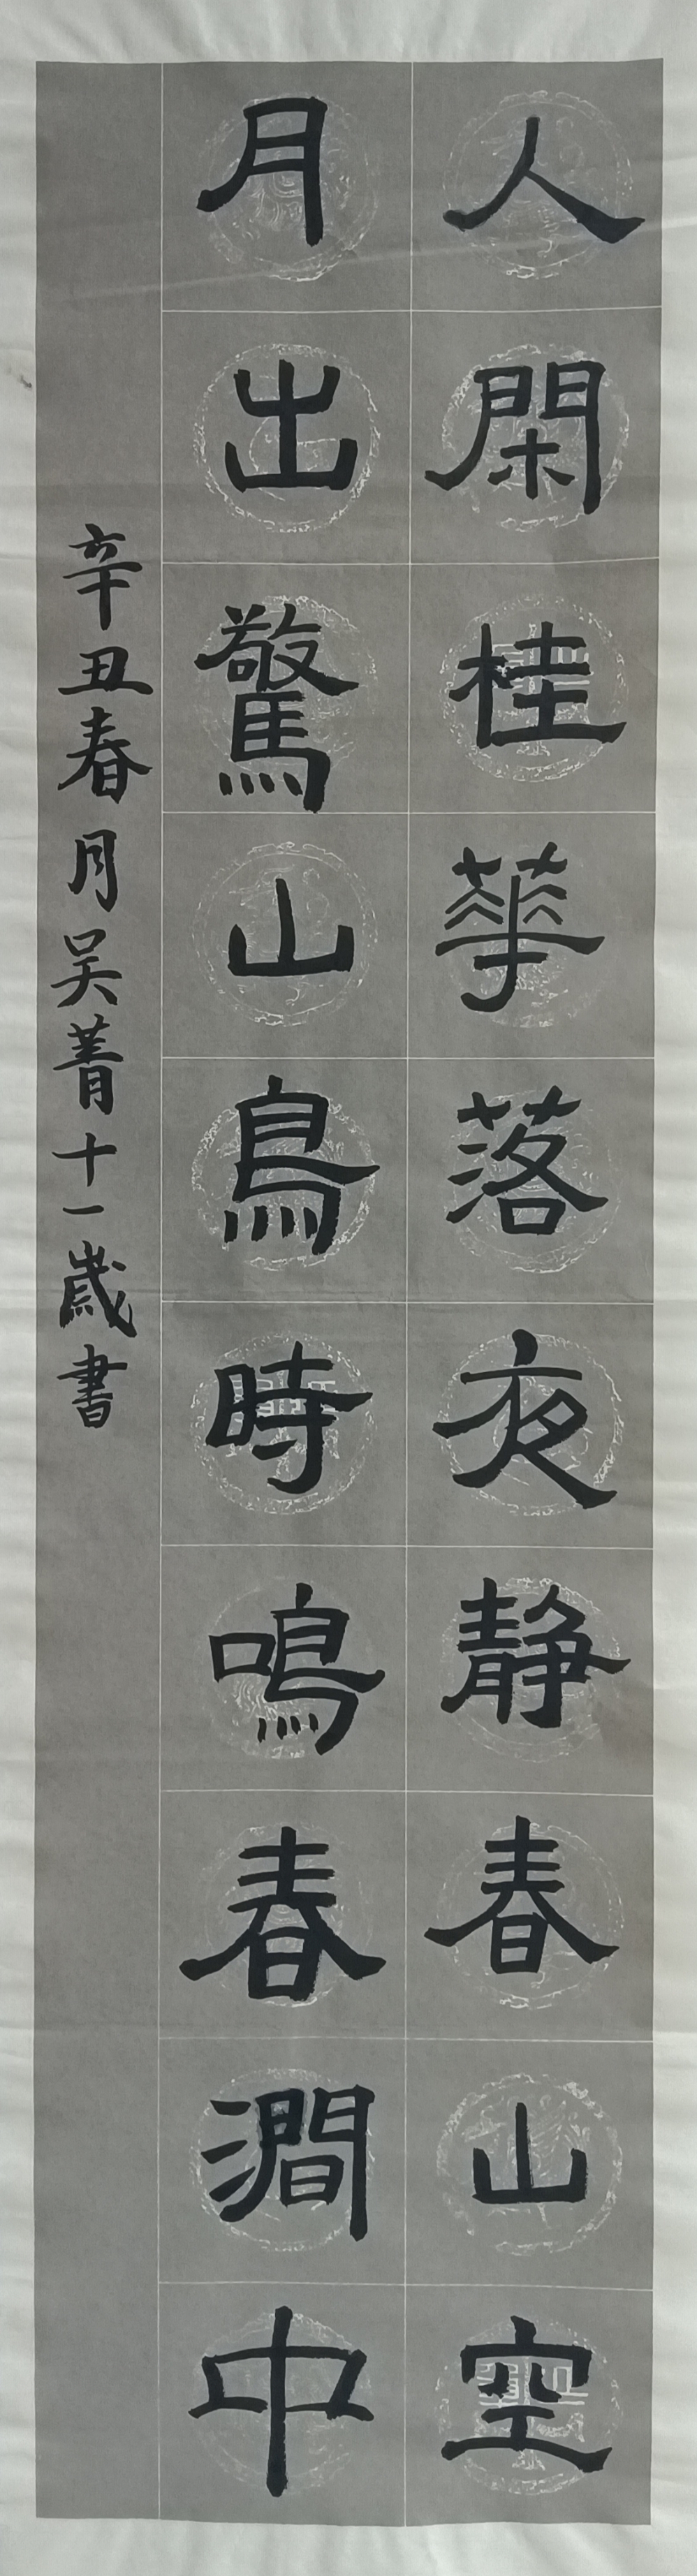 人閑桂華落夜静春山空
月出驚山鳥時鳴春澗中
辛丑春月吴菁十一歲書